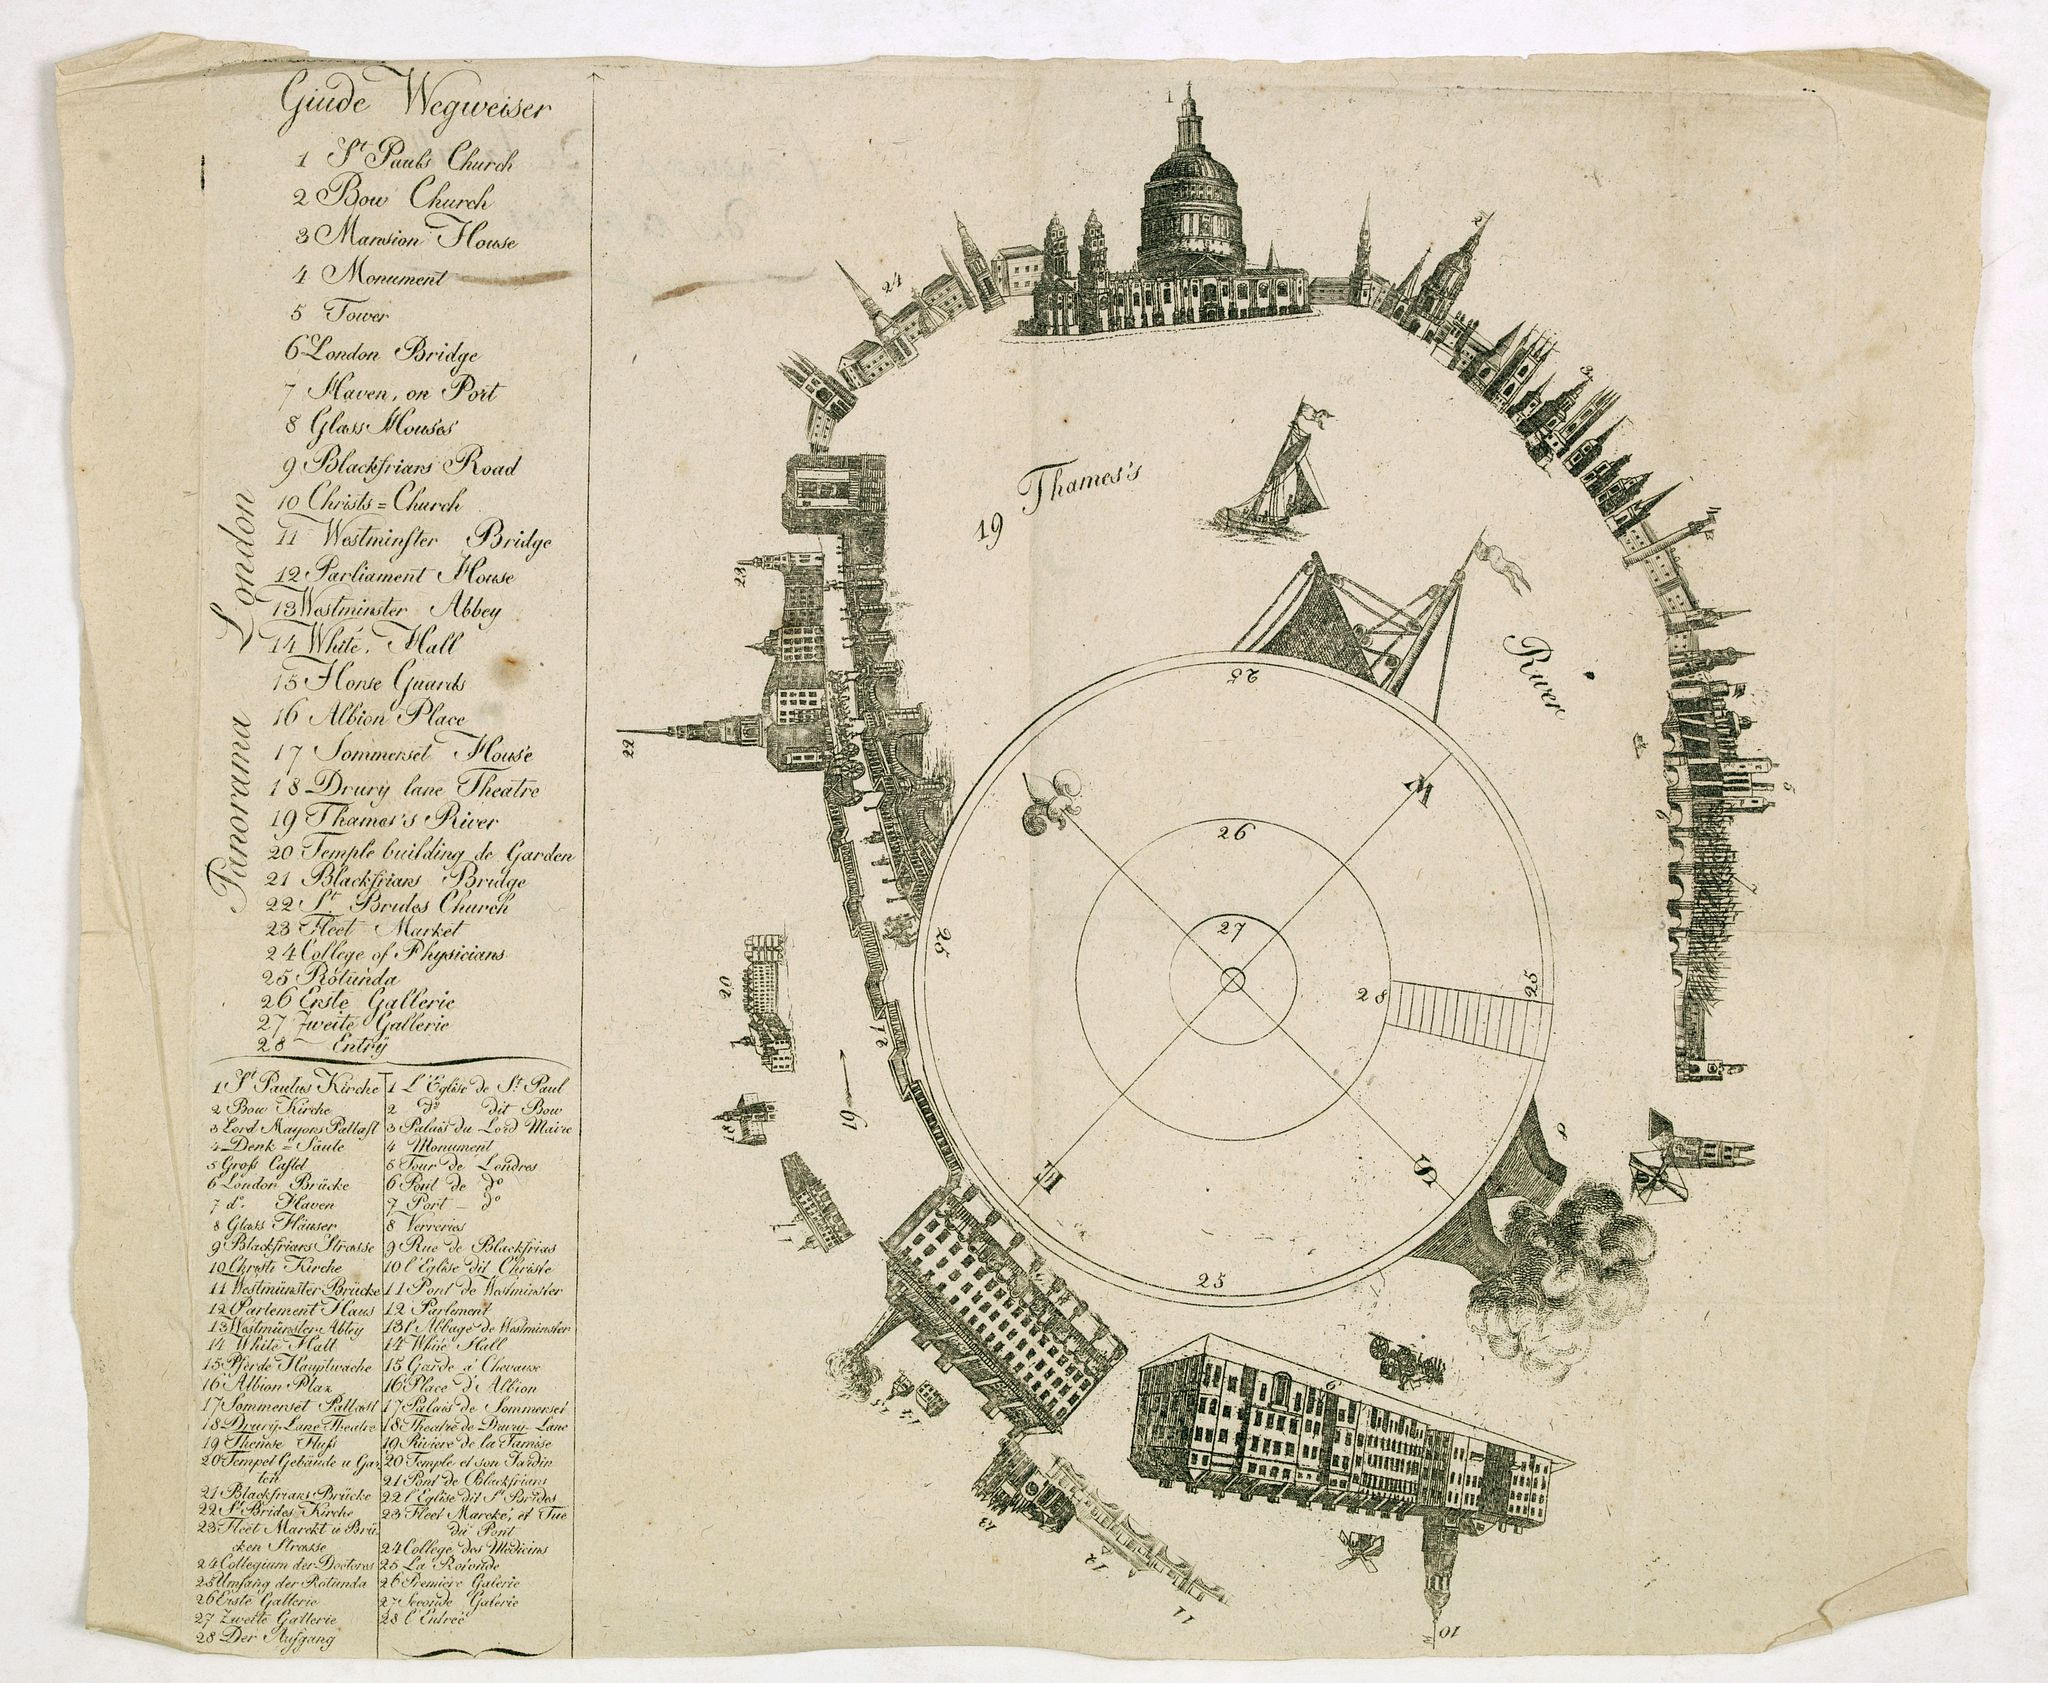 Giude Wegweiser
Panorama London
1 St Pauls Church
2 Bow Church
3 Mansion House
4 Monument
5 Tower
6 London Bridge
7 Haven, on Port
8 Glass Houses
9 Blackfriars Road
10 Christs=Church
11 Westminster Bridge
12 Parliament House
13 Westminster Abbey
14 White, Hall
15 Horse Guards
16 Albion Place
17 Sommerset House
18 Drury lane Theatre
19 Thames's River
20 Temple building de Garden
21 Blackfriars Bridge
22 St Brides Church
23 Fleet Market
24 College of Physicians
25 Rotunda
26 Erste Gallerie
27 Zweite Gallerie
28 Entrÿ
1 St Paulus Kirche
2 Bow Kirche
3 Lord Mayors Pallast
4 Denk=Säule
5 Groß Castel
6 London Brücke
7 do. Haven
8 Glass Häuser
9 Blackfriars Strasse
10 Christi Kirche
11 Westmünster Brücke
12 Parlement Haus
13 Westmünster Abtey
14 White Hall
15 Pferde Hauptwache
16 Albion Plaz
17 Sommerset Pallast
18 Drury-Lane Theatre
19 Themse Fluß
20 Tempel Gebäude u Gar
ten
21 Blackfriars Brücke
22 St Brides Kirche
23 Fleet Marckt u Brü
cken Strasse
24 Collegium der Doctores
25 Umfang der Rotunda
26 Erste Gallerie
27 Zweite Gallerie
28 Der Aufgang
1 L'Eglise de St Paul
2 do dit Bow
3 Palais du Lord Maire
4 Monument
5 Tour de Londres
6 Pont de do
7 Port - do
8 Verreries
9 Rue de Blackfrias
10 l'Eglise dit Christe
11 Pont de Westminster
12 Parlement
13 l'Abbage de Westminster
14 White Hall
15 Garde a' Chevaux
16 Place d'Albion
17 Palais de Sommerset
18 Theatre de Drury-Lane
19 Riviere de la Tamise
20 Temple et son Jardin
21 Pont de Blackfrians
22 l'Eglise dit St Brides
23 Fleet Marcke, et Tue
du Pont
24 College des Medicins
25 La Rotonde
26 Premiere Galerie
27 Seconde Galerie
28 l'Entree
1
2
24
3
19 Thames's
River
23
22
5
6
7
25
W
26
27
28
25
25
20
21
19
18
E
S
8
25
16
9
15
14
13
12
11
10